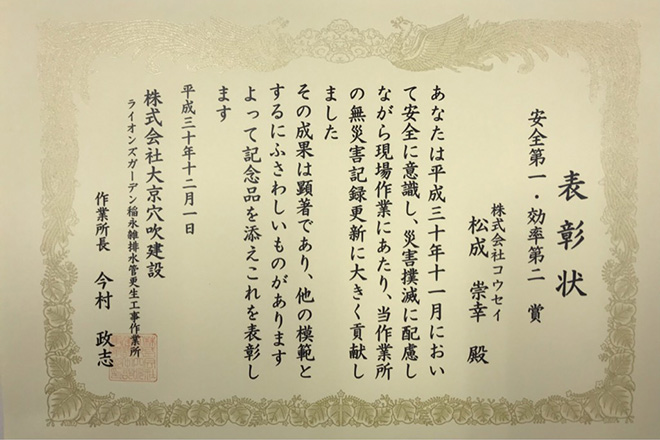 表彰状
安全第一・効率第二 賞
株式会社コウセイ
松成 崇幸 殿
あなたは平成三十年十一月におい
て安全に意識し、災害撲滅に配慮し
ながら現場作業にあたり、当作業所
の無災害記録更新に大きく貢献し
ました
その成果は顕著であり、他の模範と
するにふさわしいものがあります
よって記念品を添えこれを表彰し
ます
平成三十年十二月一日
株式会社大京穴吹建設
ライオンズガーデン稲永雑排水管更生工事作業所
作業所長 今村 政志